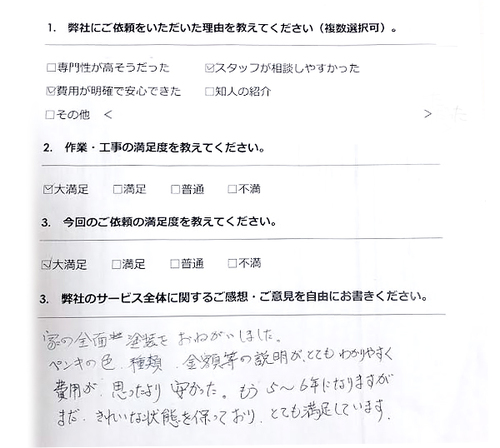 1. 弊社にご依頼をいただいた理由を教えてください（複数選択可）。
□専門性が高そうだった ☑スタッフが相談しやすかった
☑費用が明確で安心できた □知人の紹介
□その他 < >
2. 作業・工事の満足度を教えてください。
☑大満足 □満足 □普通 □不満
3. 今回のご依頼の満足度を教えてください。
☑大満足 □満足 □普通 □不満
3. 弊社のサービス全体に関するご感想・ご意見を自由にお書きください。
家の全面塗装をおねがいしました。
ペンキの色、種類、金額等の説明が、とてもわかりやすく
費用が、思ったより安かった。もう5〜6年になりますが
まだ、きれいな状態を保っており、とても満足しています。